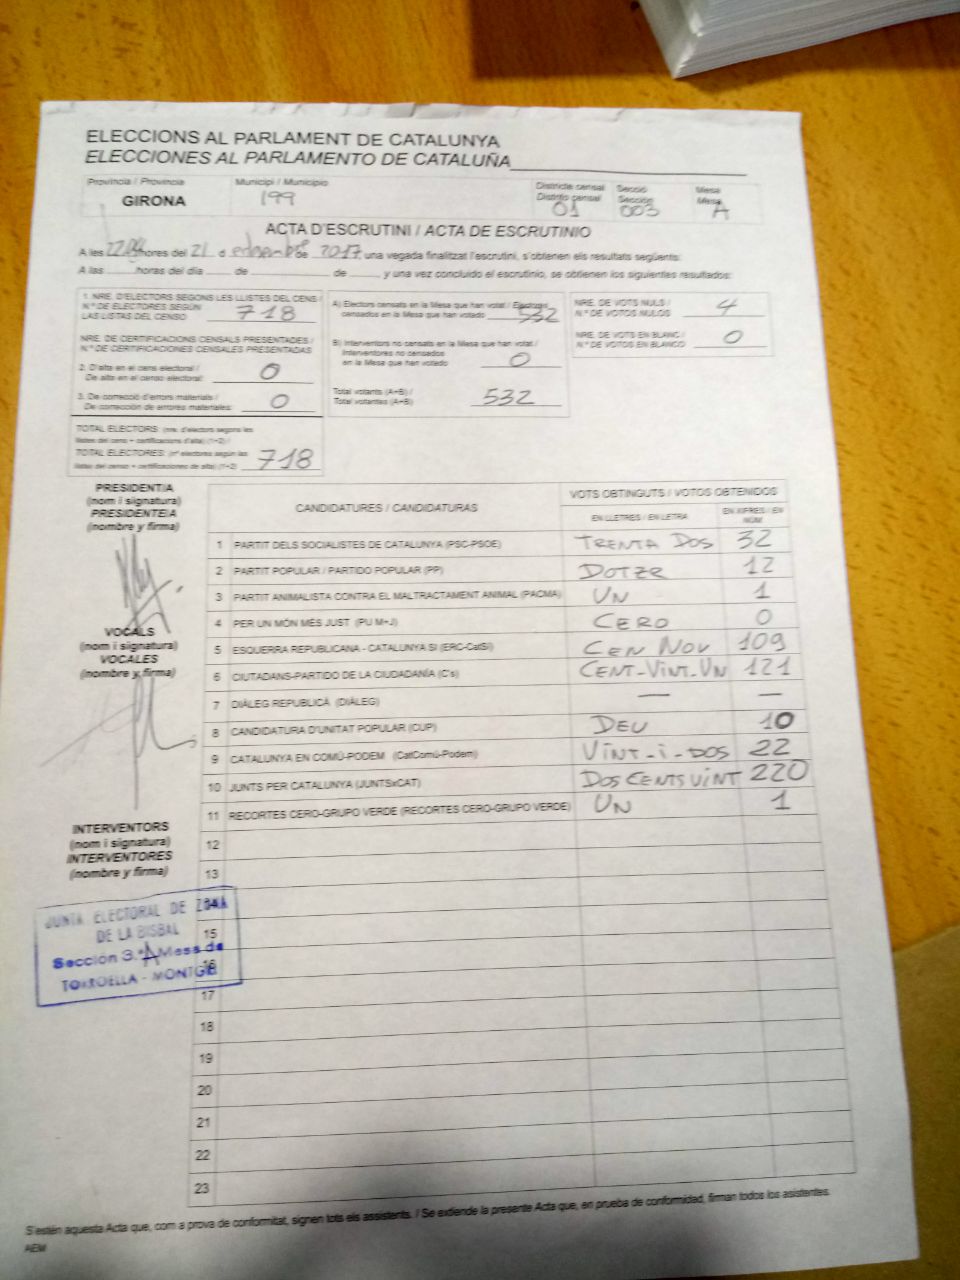 ELECCIONS AL PARLAMENT DE CATALUNYA
ELECCIONES AL PARLAMENTO DE CATALUÑA
Província / Provincia
GIRONA
Municipi / Municipio
199
Districte censal
Distrito censal
01
Secció
Sección
003
Mesa
Mesa
A
ACTA D'ESCRUTINI / ACTA DE ESCRUTINIO
A les hores del 21 d de 2017, una vegada finalitzat l'escrutini, s'obtenen els resultats següents:
A las horas del día de de y una vez concluido el escrutinio, se obtienen los siguientes resultados:
1. NRE. D'ELECTORS SEGONS LES LLISTES DEL CENS /
N.º DE ELECTORES SEGÚN
LAS LISTAS DEL CENSO 718
NRE. DE CERTIFICACIONS CENSALS PRESENTADES /
N.º DE CERTIFICACIONES CENSALES PRESENTADAS
2. D'alta en el cens electoral /
De alta en el censo electoral: 0
3. De correcció d'errors materials /
De corrección de errores materiales: 0
TOTAL ELECTORS: (nre. d'electors segons les
llistes del cens + certificacions d'alta) (1+2) /
TOTAL ELECTORES: (nº electores según las
listas del censo + certificaciones de alta) (1+2) 718
A) Electors censats en la Mesa que han votat / Electores
censados en la Mesa que han votado 532
B) Interventors no censats en la Mesa que han votat /
Interventores no censados
en la Mesa que han votado 0
Total votants (A+B) /
Total votantes (A+B) 532
NRE. DE VOTS NULS /
N.º DE VOTOS NULOS 4
NRE. DE VOTS EN BLANC /
N.º DE VOTOS EN BLANCO 0
PRESIDENT/A
(nom i signatura)
PRESIDENTE/A
(nombre y firma)
VOCALS
(nom i signatura)
VOCALES
(nombre y firma)
INTERVENTORS
(nom i signatura)
INTERVENTORES
(nombre y firma)
CANDIDATURES / CANDIDATURAS
VOTS OBTINGUTS / VOTOS OBTENIDOS
EN LLETRES / EN LETRA
EN XIFRES / EN NÚM.
1 PARTIT DELS SOCIALISTES DE CATALUNYA (PSC-PSOE) TRENTA DOS 32
2 PARTIT POPULAR / PARTIDO POPULAR (PP) DOTZE 12
3 PARTIT ANIMALISTA CONTRA EL MALTRACTAMENT ANIMAL (PACMA) UN 1
4 PER UN MÓN MÉS JUST (PU M+J) CERO 0
5 ESQUERRA REPUBLICANA - CATALUNYA SÍ (ERC-CatSí) CEN NOU 109
6 CIUTADANS-PARTIDO DE LA CIUDADANÍA (C's) CENT-VINT-UN 121
7 DIÀLEG REPUBLICÀ (DIÀLEG) — —
8 CANDIDATURA D'UNITAT POPULAR (CUP) DEU 10
9 CATALUNYA EN COMÚ-PODEM (CatComú-Podem) VINT-I-DOS 22
10 JUNTS PER CATALUNYA (JUNTSxCAT) DOS CENTS VINT 220
11 RECORTES CERO-GRUPO VERDE (RECORTES CERO-GRUPO VERDE) UN 1
12
13
14
15
16
17
18
19
20
21
22
23
JUNTA ELECTORAL DE ZONA
DE LA BISBAL
Sección 3.ª A Mesa de
TORROELLA - MONTGRÍ
S'estén aquesta Acta que, com a prova de conformitat, signen tots els assistents. / Se extiende la presente Acta que, en prueba de conformidad, firman todos los asistentes.